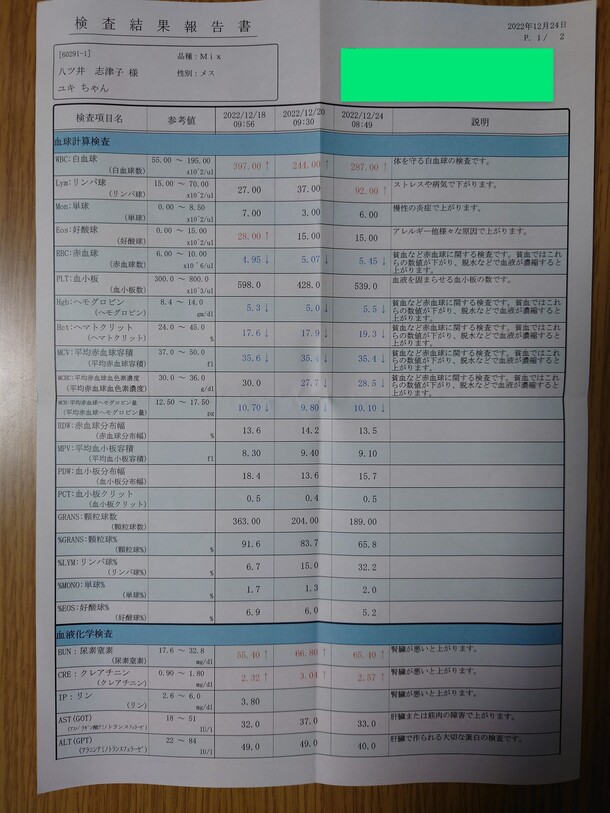 検査結果報告書
2022年12月24日
P. 1/ 2
[60291-1]
品種：Ｍｉｘ
八ツ井 志津子 様
性別：メス
ユキ ちゃん
検査項目名 参考値 2022/12/18 09:56 2022/12/20 09:30 2022/12/24 08:49 説明
血球計算検査
WBC:白血球 (白血球数) 55.00 ～ 195.00 x10^2/ul 397.00 ↑ 244.00 ↑ 287.00 ↑ 体を守る白血球の検査です。
Lym:リンパ球 (リンパ球) 15.00 ～ 70.00 x10^2/ul 27.00 37.00 92.00 ↑ ストレスや病気で下がります。
Mon:単球 (単球) 0.00 ～ 8.50 x10^2/ul 7.00 3.00 6.00 慢性の炎症で上がります。
Eos:好酸球 (好酸球) 0.00 ～ 15.00 x10^2/ul 28.00 ↑ 15.00 15.00 アレルギー他様々な原因で上がります。
RBC:赤血球 (赤血球数) 6.00 ～ 10.00 x10^6/ul 4.95 ↓ 5.07 ↓ 5.45 ↓ 貧血など赤血球に関する検査です。貧血ではこれらの数値が下がり、脱水などで血液が濃縮すると上がります。
PLT:血小板 (血小板数) 300.0 ～ 800.0 x10^3/ul 598.0 428.0 539.0 血液を固まらせる血小板の数です。
Hgb:ヘモグロビン (ヘモグロビン) 8.4 ～ 14.0 gm/dl 5.3 ↓ 5.0 ↓ 5.5 ↓ 貧血など赤血球に関する検査です。貧血ではこれらの数値が下がり、脱水などで血液が濃縮すると上がります。
Hct:ヘマトクリット (ヘマトクリット) 24.0 ～ 45.0 % 17.6 ↓ 17.9 ↓ 19.3 ↓ 貧血など赤血球に関する検査です。貧血ではこれらの数値が下がり、脱水などで血液が濃縮すると上がります。
MCV:平均赤血球容積 (平均赤血球容積) 37.0 ～ 50.0 fl 35.6 ↓ 35.4 ↓ 35.4 ↓ 貧血など赤血球に関する検査です。貧血ではこれらの数値が下がり、脱水などで血液が濃縮すると上がります。
MCHC:平均赤血球血色素濃度 (平均赤血球血色素濃度) 30.0 ～ 36.0 g/dl 30.0 27.7 ↓ 28.5 ↓ 貧血など赤血球に関する検査です。貧血ではこれらの数値が下がり、脱水などで血液が濃縮すると上がります。
MCH:平均赤血球ヘモグロビン量 (平均赤血球ヘモグロビン量) 12.50 ～ 17.50 pg 10.70 ↓ 9.80 ↓ 10.10 ↓
RDW:赤血球分布幅 (赤血球分布幅) % 13.6 14.2 13.5
MPV:平均血小板容積 (平均血小板容積) fl 8.30 9.40 9.10
PDW:血小板分布幅 (血小板分布幅) 18.4 13.6 15.7
PCT:血小板クリット (血小板クリット) 0.5 0.4 0.5
GRANS:顆粒球数 (顆粒球数) 363.00 204.00 189.00
%GRANS:顆粒球% (顆粒球%) % 91.6 83.7 65.8
%LYM:リンパ球% (リンパ球%) % 6.7 15.0 32.2
%MONO:単球% (単球%) % 1.7 1.3 2.0
%EOS:好酸球% (好酸球%) % 6.9 6.0 5.2
血液化学検査
BUN：尿素窒素 (尿素窒素) 17.6 ～ 32.8 mg/dl 55.40 ↑ 66.80 ↑ 65.40 ↑ 腎臓が悪いと上がります。
CRE：クレアチニン (クレアチニン) 0.90 ～ 1.80 mg/dl 2.32 ↑ 3.04 ↑ 2.57 ↑ 腎臓が悪いと上がります。
IP：リン (リン) 2.6 ～ 6.0 mg/dl 3.80 腎臓が悪いと上がります。
AST(GOT) (アスパラギン酸アミノトランスフェラーゼ) 18 ～ 51 IU/l 32.0 37.0 33.0 肝臓または筋肉の障害で上がります。
ALT(GPT) (アラニンアミノトランスフェラーゼ) 22 ～ 84 IU/l 49.0 49.0 40.0 肝臓で作られる大切な蛋白の検査です。